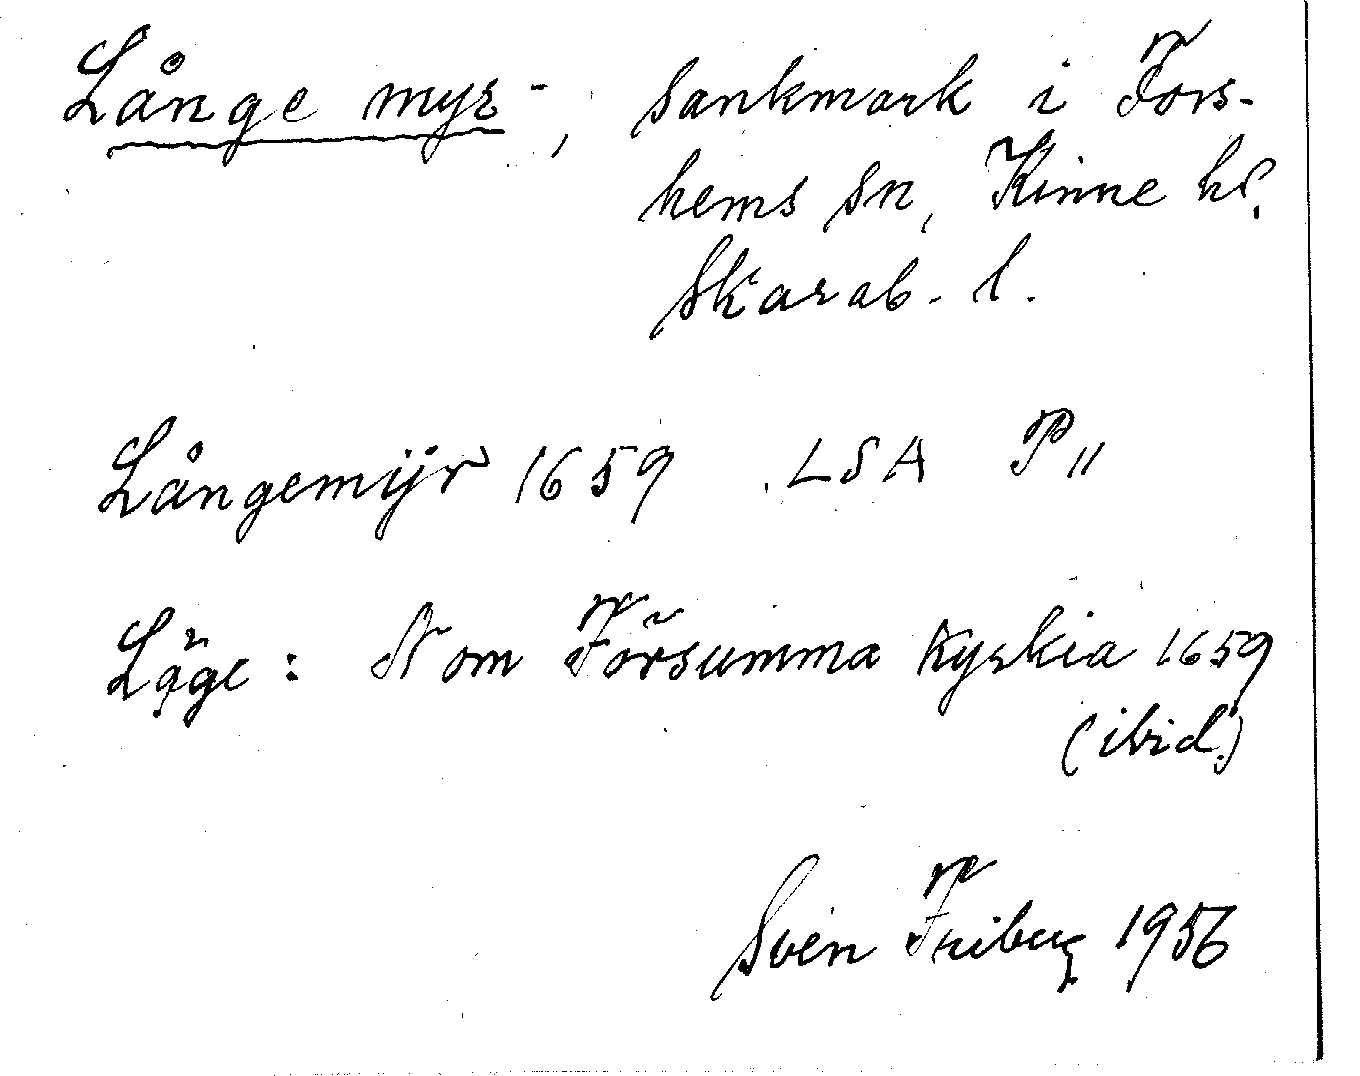 Långe myr-, sankmark i Fors-
hems sn, Kinne hd.
Skarab. l.
Långemÿr 1659 LSA P11
Läge: N om Försumma Kyrkia 1659
(ibid.)
Sven Friberg 1956